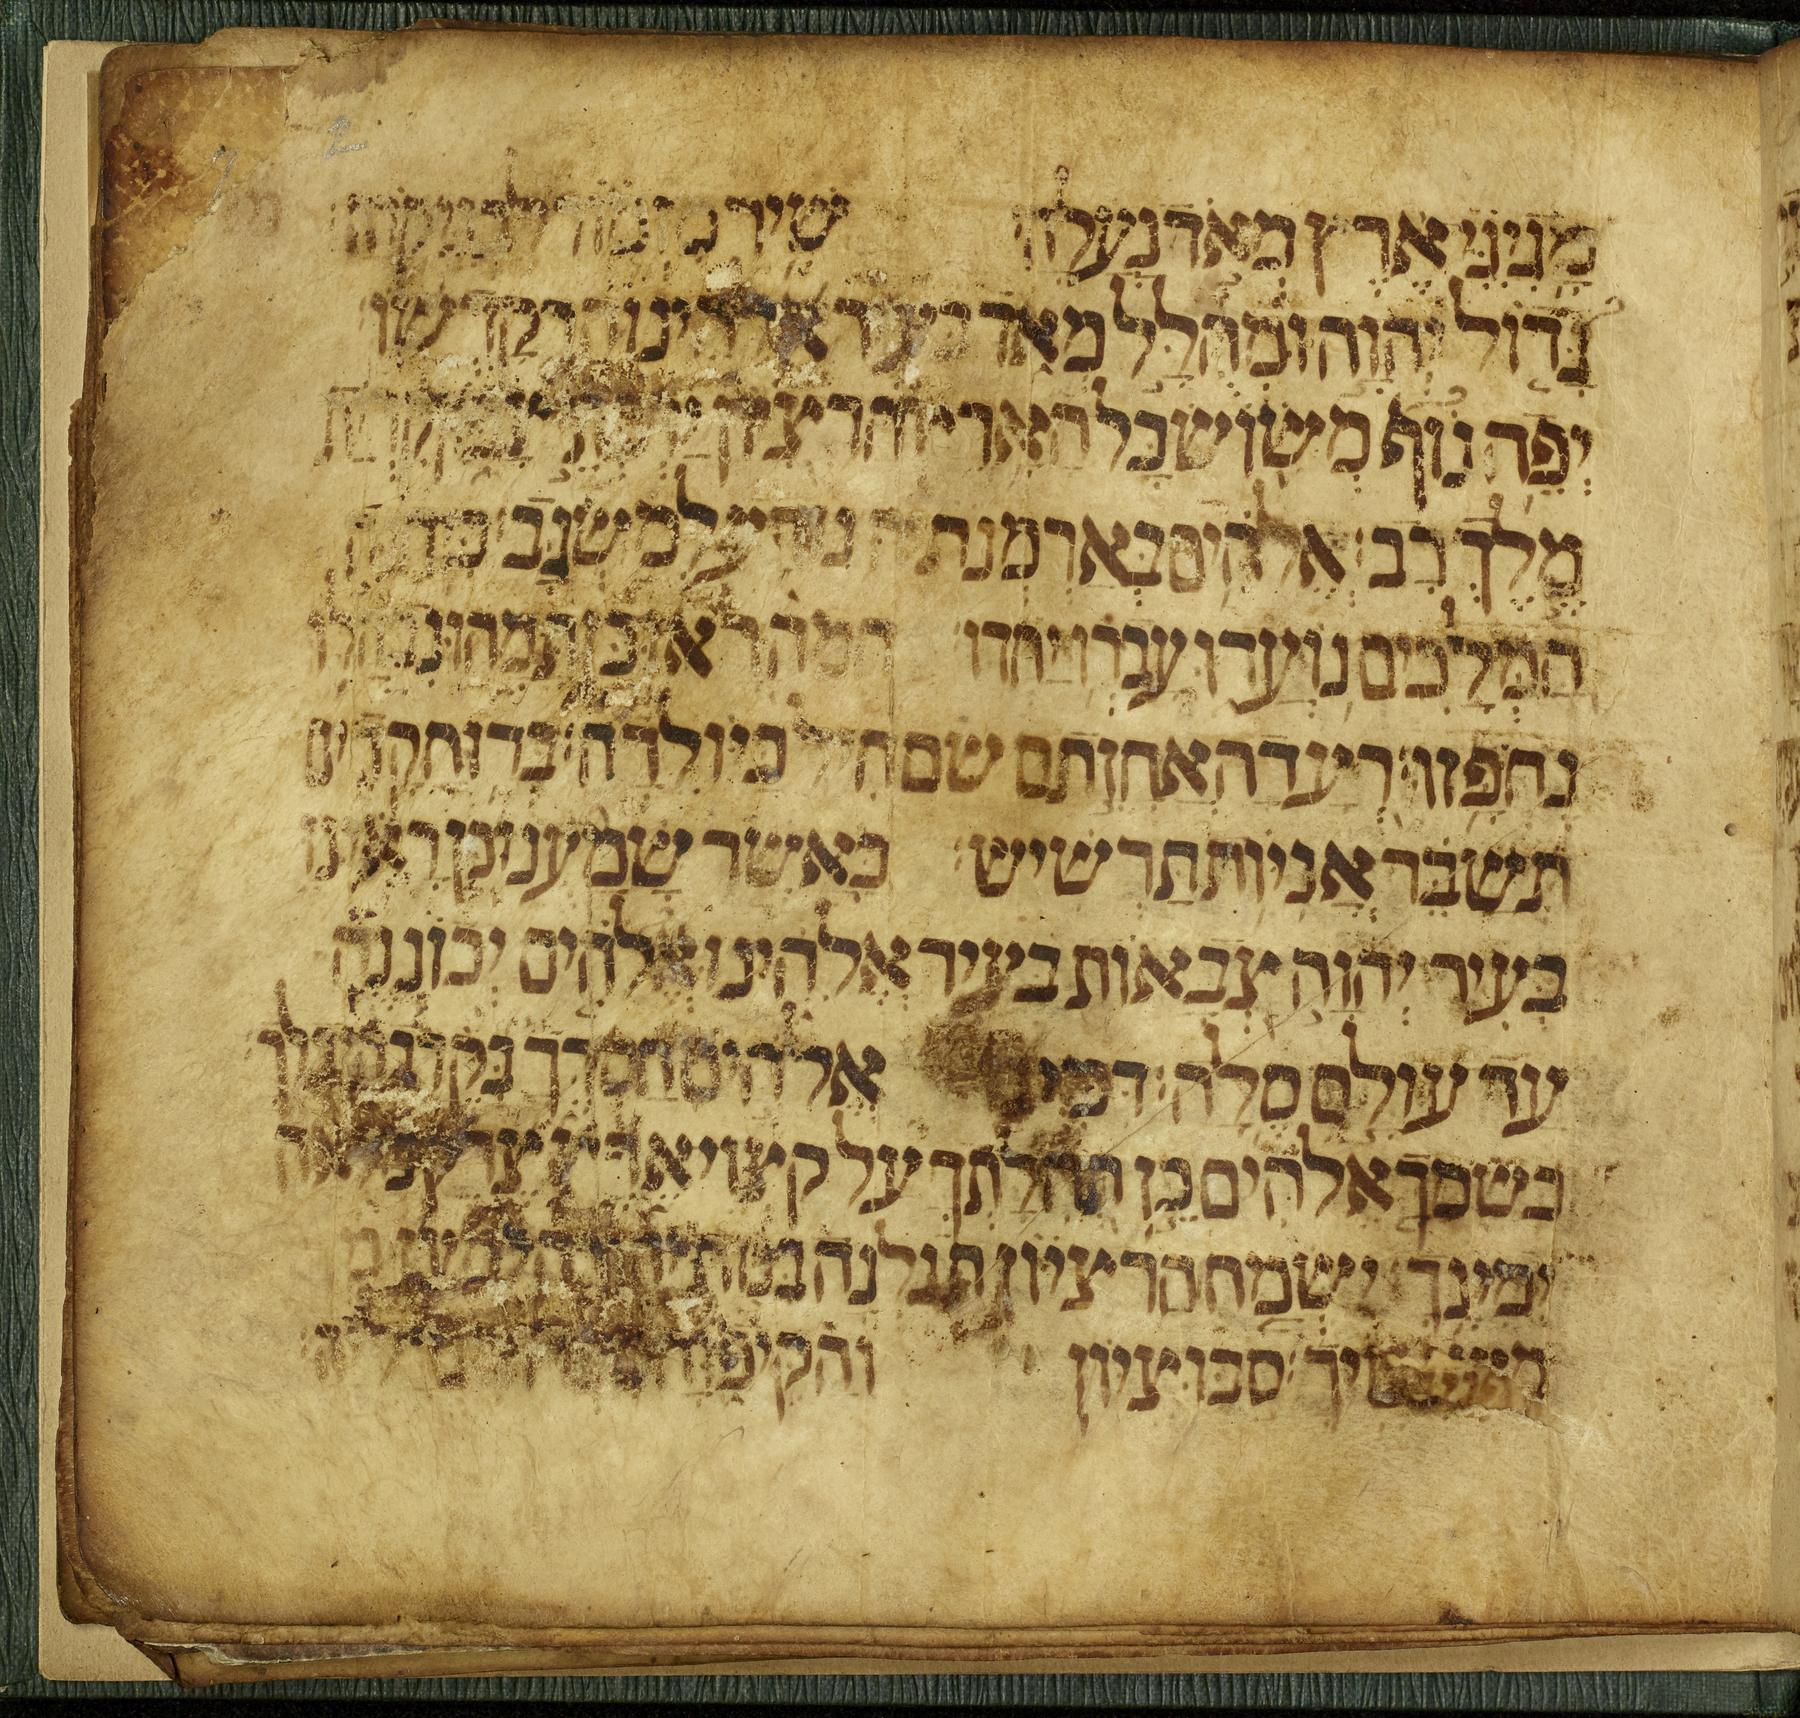 מָגִנֵּי אֶרֶץ מְאֹד נַעֲלָה שִׁיר מִזְמוֹר לִבְנֵי קֹרַח
גָּדוֹל יְהוָה וּמְהֻלָּל מְאֹד בְּעִיר אֱלֹהֵינוּ הַר קָדְשׁוֹ
יְפֵה נוֹף מְשׂוֹשׂ כָּל הָאָרֶץ הַר צִיּוֹן
מֶלֶךְ רָב׃ אֱלֹהִים בְּאַרְמְנֹתֶיהָ נוֹדַע לְמִשְׂגָּב׃ כִּי הִנֵּה
הַמְּלָכִים נוֹעֲדוּ עָבְרוּ יַחְדּוּ׃ הֵמָּה רָאוּ כֵּן תָּמָהוּ נִבְהֲלוּ
נֶחְפָּזוּ׃ רְעָדָה אֲחָזָתַם שָׁם חִיל כַּיּוֹלֵדָה׃ בְּרוּחַ קָדִים
תְּשַׁבֵּר אֳנִיּוֹת תַּרְשִׁישׁ׃ כַּאֲשֶׁר שָׁמַעְנוּ כֵּן רָאִינוּ
בְּעִיר יְהוָה צְבָאוֹת בְּעִיר אֱלֹהֵינוּ אֱלֹהִים יְכוֹנְנֶהָ
עַד עוֹלָם סֶלָה׃ דִּמִּינוּ אֱלֹהִים חַסְדֶּךָ בְּקֶרֶב הֵיכָלֶךָ
כְּשִׁמְךָ אֱלֹהִים כֵּן תְּהִלָּתְךָ עַל קַצְוֵי אֶרֶץ צֶדֶק מָלְאָה
יְמִינֶךָ׃ יִשְׂמַח הַר צִיּוֹן תָּגֵלְנָה בְּנוֹת יְהוּדָה לְמַעַן
מִשְׁפָּטֶיךָ׃ סֹבּוּ צִיּוֹן וְהַקִּיפוּהָ